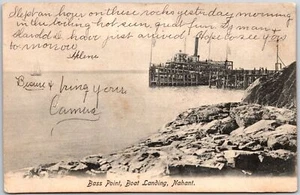 Slept an hour on these rocks yesterday morning
in the boiling hot sun, great fun. Lyman
and I have just arrived Hope to see you
to morrow
Helene
Be sure & bring your
Camera
Bass Point, Boat Landing, Nahant.